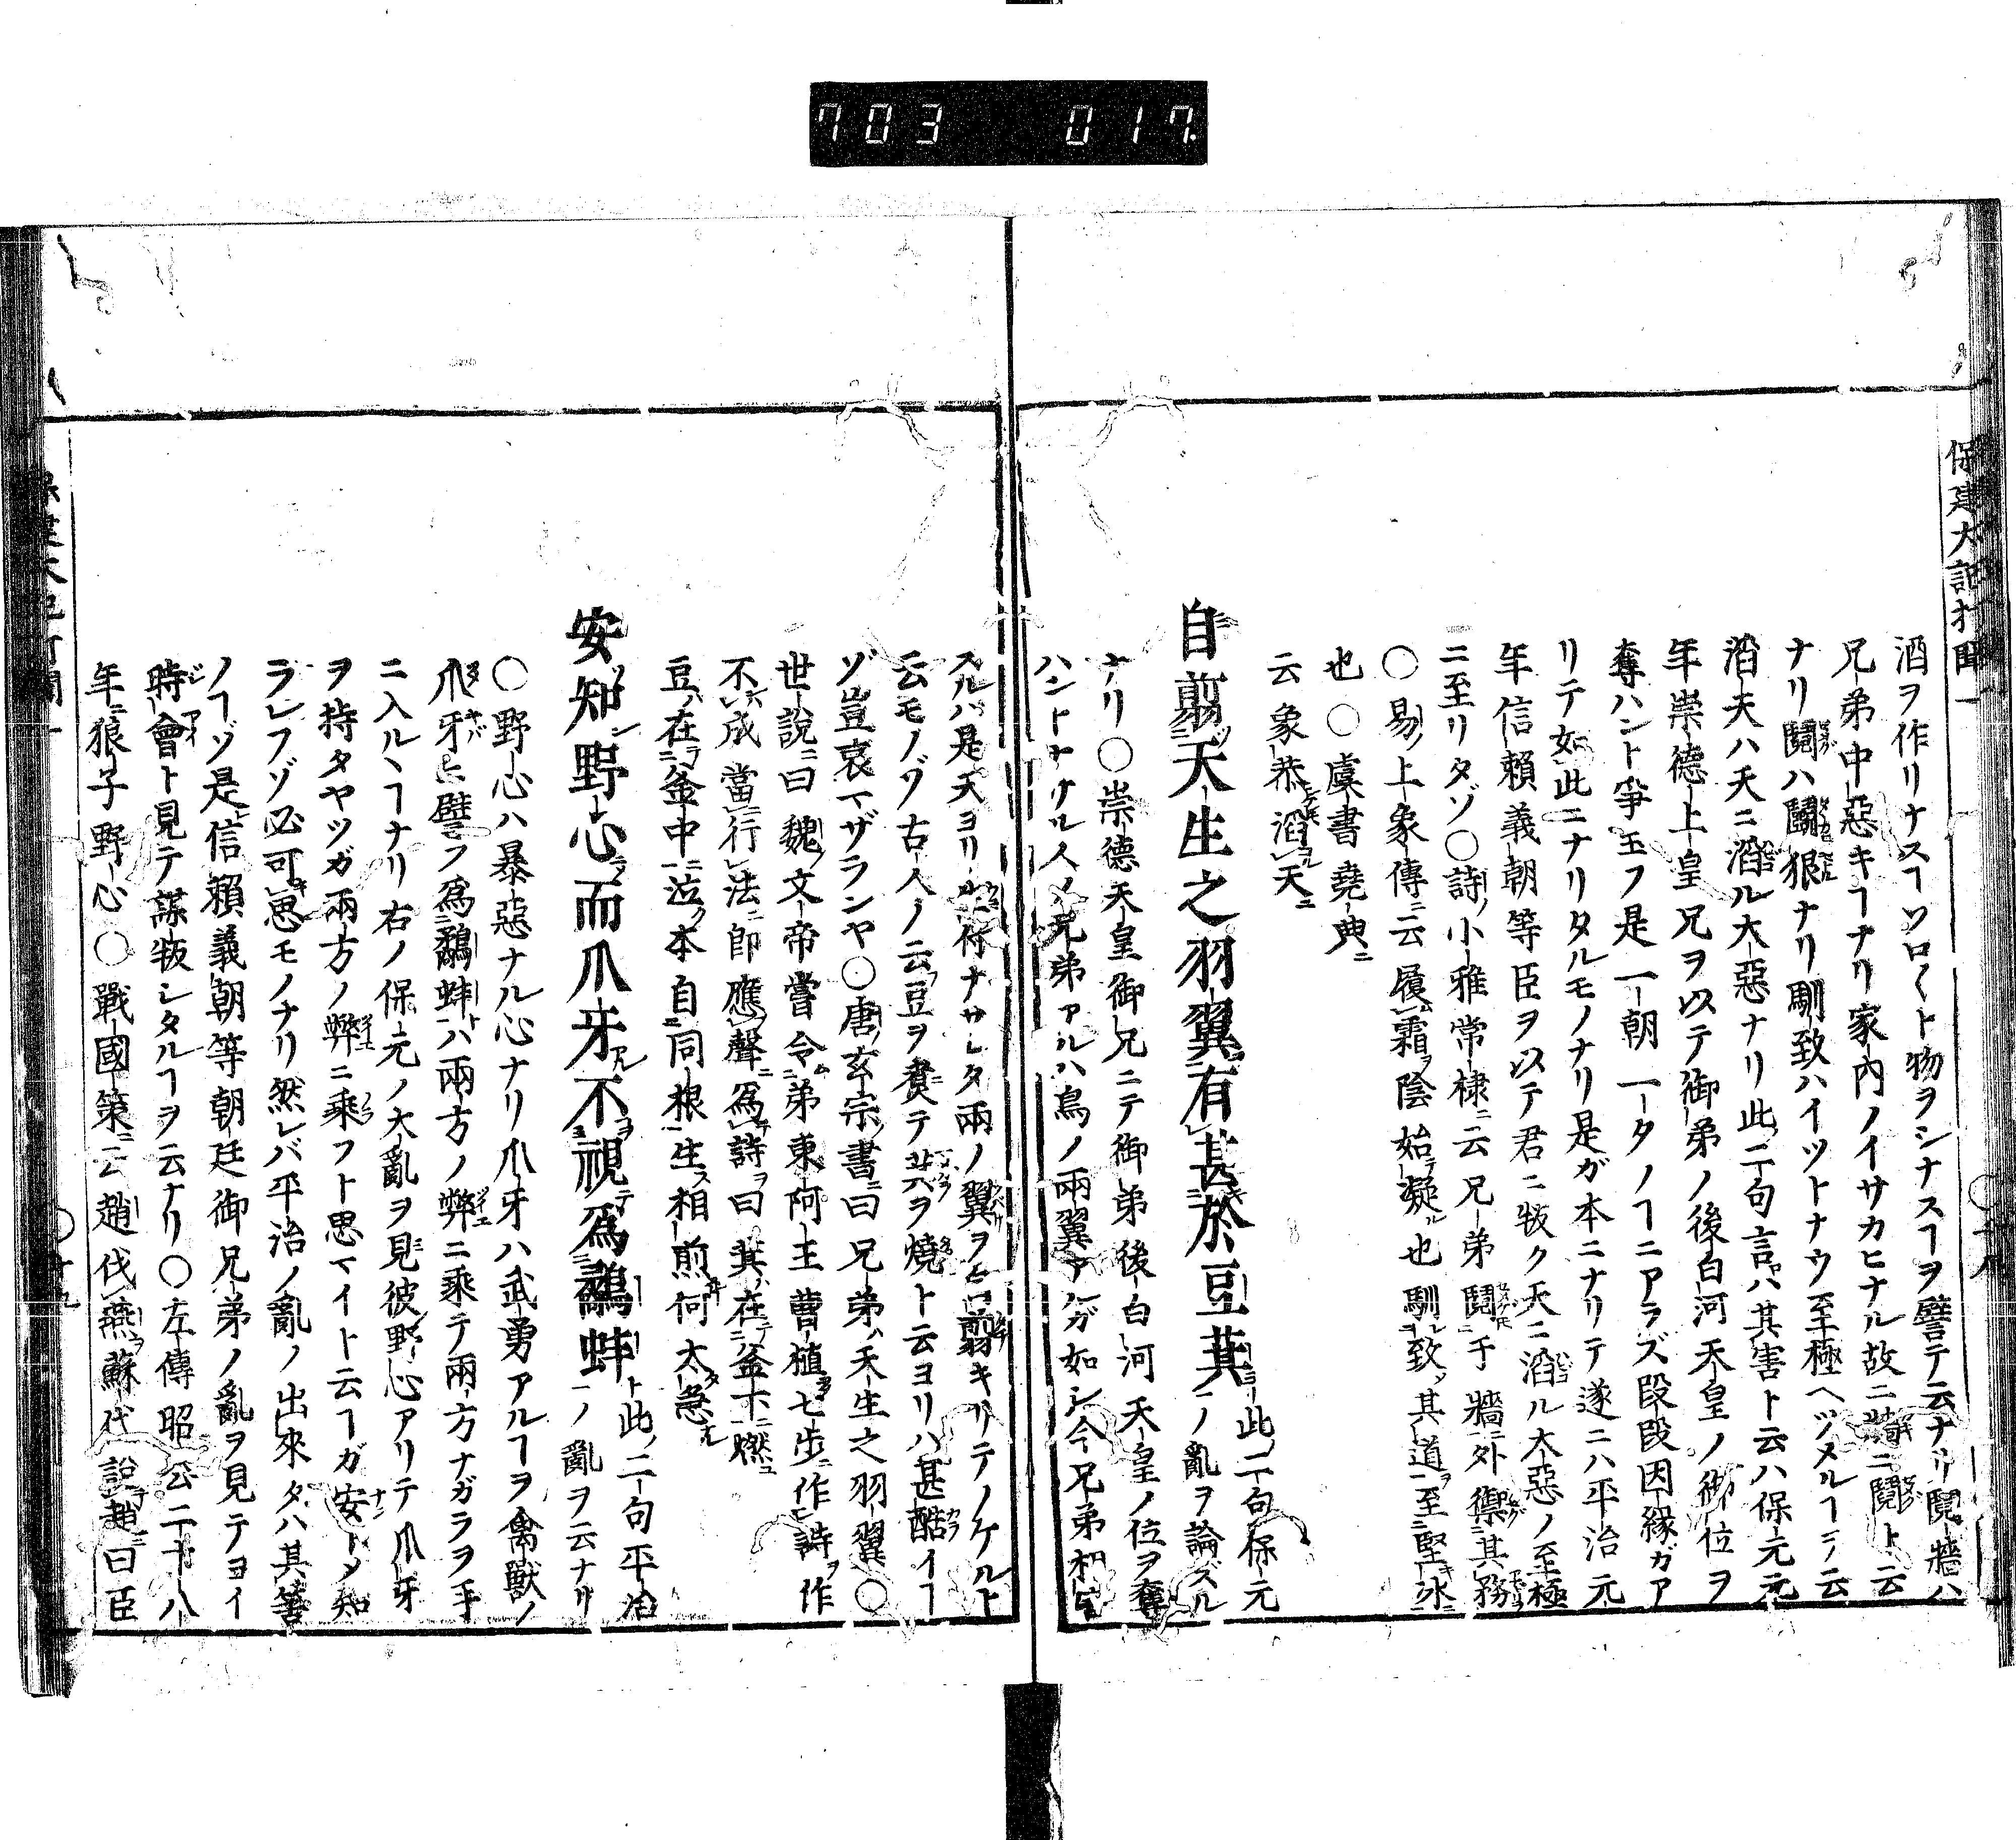 703 017
保建大記打聞一
酒ヲ作リナスヿソロ〱ト物ヲシナスヿヲ譬テ云ナリ鬩牆ハ
兄弟中惡キヿナリ家内ノイサカヒナル故ニ牆ニ鬩ト云
ナリ鬩ハ鬪狠ナリ馴致ハイツトナウ至極ヘツメルヿヲ云
滔天ハ天ニ滔ル大惡ナリ此ノ二句言ハ其害ト云ハ保元元
年崇德上皇兄ヲ以テ御弟ノ後白河天皇ノ御位ヲ
奪ハント爭玉フ是一朝一タノヿニアラズ段段因縁ガア
リテ如此ニナリタルモノナリ是ガ本ニナリテ遂ニハ平治元
年信賴義朝等臣ヲ以テ君ニ叛ク天ニ滔ル大惡ノ至極
ニ至リタゾ〇詩ノ小雅常棣ニ云兄弟鬩于牆外禦其務
〇易ノ上象傳ニ云履霜陰始凝也馴致其道至堅冰
也〇虞書堯典ニ
云象恭滔天
自翦天生之羽翼有甚於豆萁此ノ二句保元
ノ亂ヲ論ズル
ナリ〇崇德天皇御兄ニテ御弟後白河天皇ノ位ヲ奪
ハントナサルル人ノ兄弟アルハ鳥ノ兩翼アルガ如シ今兄弟相害
スルハ是天ヨリ付ナサレタ兩ノ翼ヲ翦キリテノケルト
云モノゾ古人ノ云豆ヲ煑テ萁ヲ燒ト云ヨリハ甚酷イヿ
ゾ豈哀マザランヤ〇唐ノ玄宗ノ書ニ曰兄弟ハ天生之羽翼〇
世說ニ曰魏ノ文帝嘗令弟東阿王曹植七步作詩作
不成當行法即應聲爲詩曰萁在釜下燃
豆在釜中泣本自同根生相煎何太急
安知野心而爪牙不視爲鷸蚌ト此ノ二句平治
ノ亂ヲ云ナリ
〇野心ハ暴惡ナル心ナリ爪牙ハ武勇アルヿヲ禽獸ノ
爪牙ニ譬フ爲鷸蚌ハ兩方ノ弊ニ乘テ兩方ナガラヲ手
ニ入ルヽヿナリ右ノ保元ノ大亂ヲ見彼野心アリテ爪牙
ヲ持タヤツガ兩方ノ弊ニ乘フト思マイト云ヿガ安トメ知
ラレフゾ必可思モノナリ然レバ平治ノ亂ノ出來タハ其筈
ノヿゾ是信賴義朝等朝廷御兄弟ノ亂ヲ見テヨイ
時會ト見テ謀叛シタルヿヲ云ナリ〇左傳昭公二十八
年狼子野心〇戰國策ニ云趙伐燕蘇代說趙曰臣